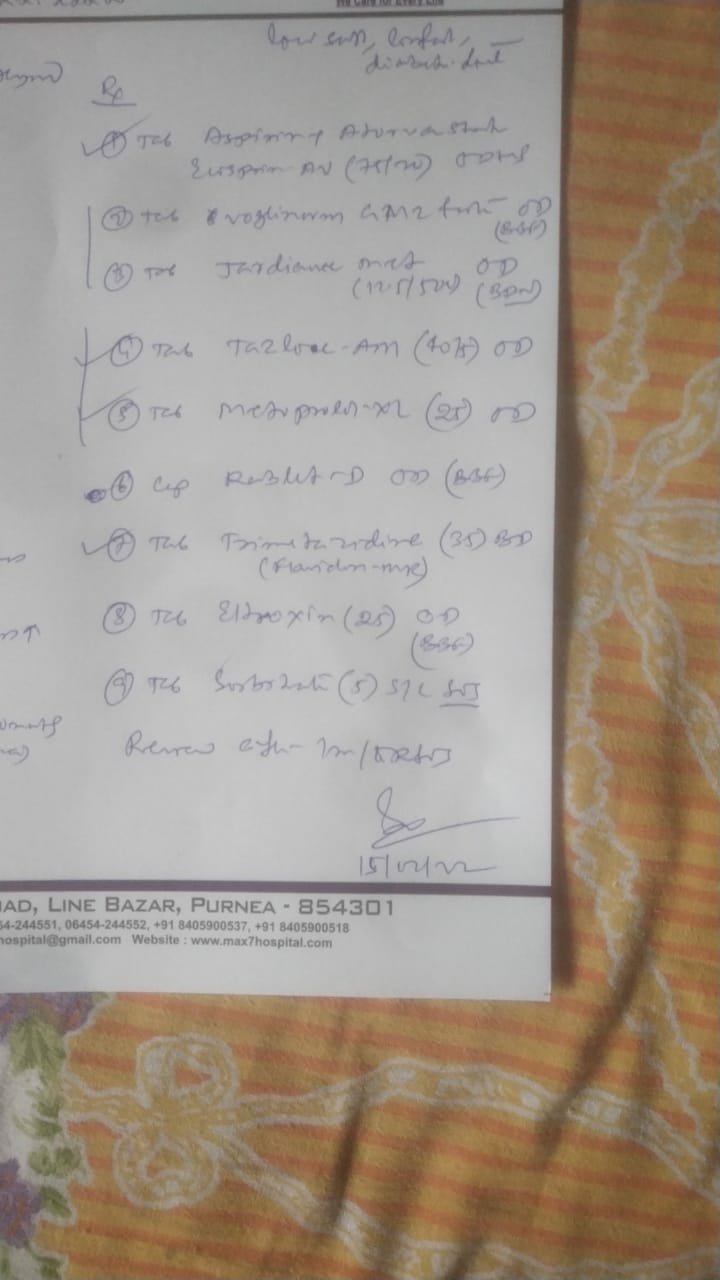 We Care for Every Life
low salt, low fat,
diabetic diet
Rx
① Tab Aspirin + Atorvastatin
Ecosprin AV (75/20) OD HS
② Tab Voglinorm GM2 forte OD
(BBF)
③ Tab Jardiance met OD
(12.5/500)
④ Tab Tazloc-AM (40/5) OD
⑤ Tab Metoprolol-XL (25) OD
⑥ Cap Rablet-D OD (BBF)
⑦ Tab Trimetazidine (35) BD
(Flavidon-MR)
⑧ Tab Eltroxin (25) OD
(BBF)
⑨ Tab Sorbitrate (5) S/L SOS
Review after 1m/SOS
15/02/22
AD, LINE BAZAR, PURNEA - 854301
54-244551, 06454-244552, +91 8405900537, +91 8405900518
hospital@gmail.com Website : www.max7hospital.com